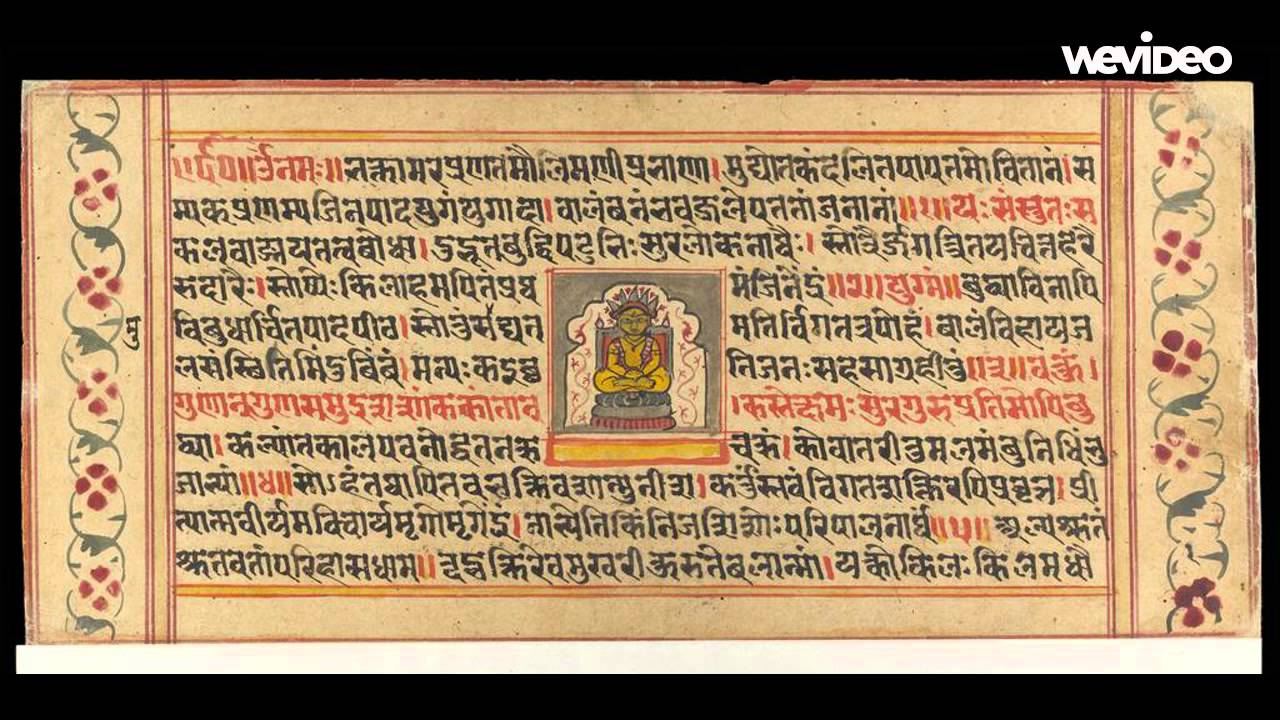 WEVIDEO
नमः॥ भक्तामरप्रणतमौलिमणीप्रभाणा।मुद्योतकंदलितपापतमोवितानं।स
म्यकप्रणम्यजिनपादयुगंयुगादा।वालंबनंभवजलेपततांजनानां॥१॥यःसंस्तुतःस
कलवाङ्मयतत्वबोधा।दुद्भूतबुद्धिपटुभिःसुरलोकनाथैः।स्तोत्रैर्जगत्रितयचित्तहरै
रुदारैः।स्तोष्येःकिलाहमपितंप्रथ मंजिनेंद्रं॥२॥युग्मं॥बुध्याविनापि
विबुधार्चितपादपीठ।स्तोतुंसमुद्यत मतिर्विगतत्रपोहं।बालंविहायज
लसंस्थितिमिंदुबिंबं।मन्यःकइच्छ तिजनःसहसाग्रहीतुं॥३॥वक्तुं।
गुणान्गुणसमुद्रशशांककांतान् ।कस्तेक्षमःसुरगुरुप्रतिमोपिबु
ध्या।कल्पांतकालपवनोद्धतनक्र चक्रं।कोवातरीतुमलमंबुनिधिंभु
जाभ्यां॥४॥सोऽहंतथापितवभक्तिवशान्मुनीश।कर्तुंस्तवंविगतशक्तिरपिप्रवृत्तः।प्री
त्यात्मवीर्यमविचार्यमृगोमृगेंद्रं।नाभ्येतिकिंनिजशिशोःपरिपालनार्थं॥५॥अल्पश्रुतं
श्रुतवतांपरिहासधाम॥त्वद्भक्तिरेवमुखरीकुरुतेबलान्मां।यत्कोकिलःकिलमधौ